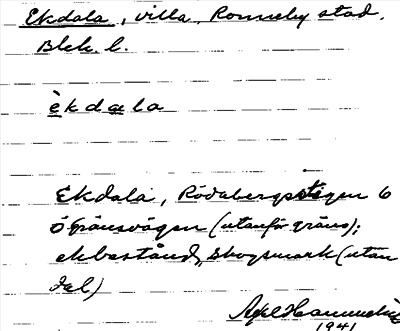 Ekdala, villa, Ronneby stad,
Blek. l.
èkdala
Ekdala, Rödabergsstigen 6
ö Gränsvägen (utanför gräns);
ekbestånd, skogsmark (utan
dal)
Axel
1941